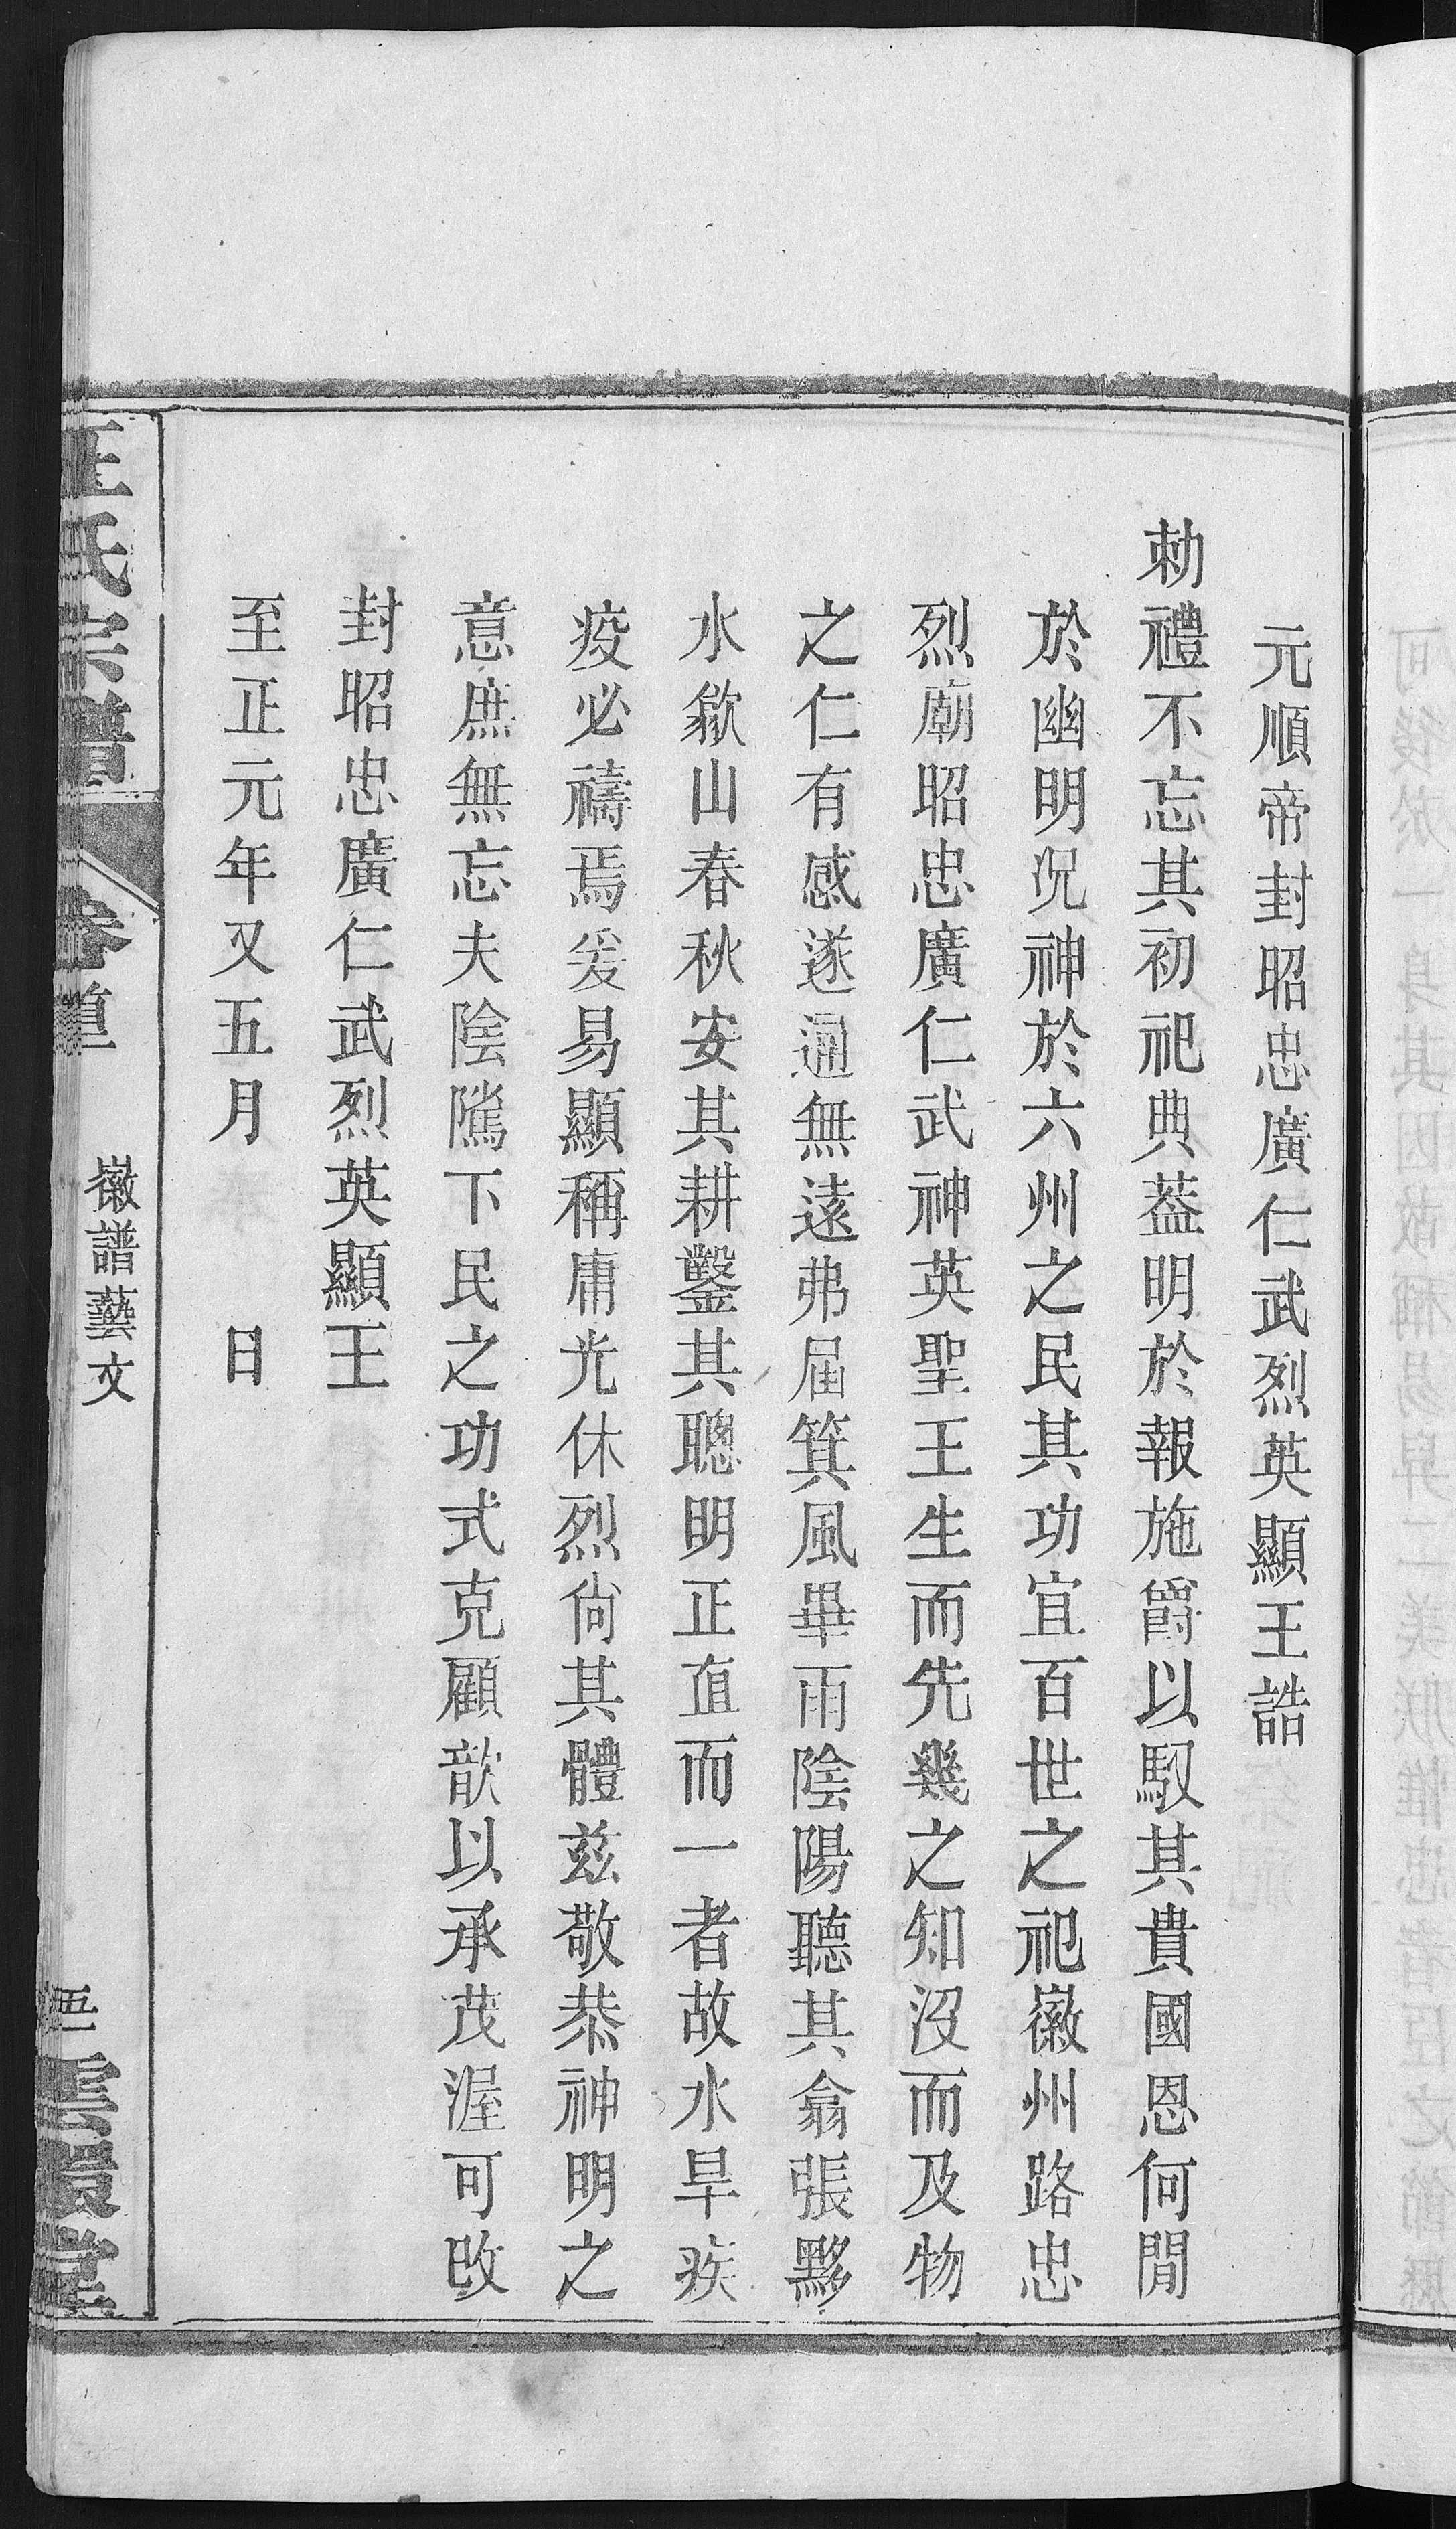 元順帝封昭忠廣仁武烈英顯王誥
勅禮不忘其初祀典葢明於報施爵以馭其貴國恩何間
於幽明况神於六州之民其功宜百世之祀徽州路忠
烈廟昭忠廣仁武神英聖王生而先幾之知沒而及物
之仁有感遂通無遠弗屆箕風畢雨陰陽聽其翕張黟
水歙山春秋安其耕鑿其聰明正直而一者故水旱疾
疫必禱焉爰易顯稱庸光休烈尙其體兹敬恭神明之
意庶無忘夫陰隲下民之功式克顧歆以承茂渥可改
封昭忠廣仁武烈英顯王
至正元年又五月　　日
汪氏宗譜
卷首
徽譜藝文
雲環堂